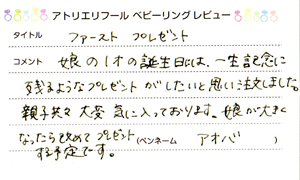 アトリエリフール ベビーリング レビュー
タイトル ファースト プレゼント
コメント 娘の1才の誕生日には、一生記念に
残るようなプレゼントがしたいと思い注文しました。
親子共々 大変 気に入っております。娘が大きく
なったら改めてプレゼント (ペンネーム アオバ )
する予定です。